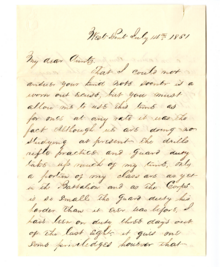 West Point July 18th 1861
My dear Aunty,
That I could not
answer your kind note sooner is a
worn out excuse, but you must
allow me to use this time as
for once at any rate it was the
fact. Although it is doing no
studying at present the drills
rifle practice and Guard duty
take up much of my time. Only
a portion of my class are as yet
in the Battalion and as the Corps
is so small the Guard duty is
harder than it ever was before. I
have been on duty three days out
of the last eight. it gives out
some privileges however that